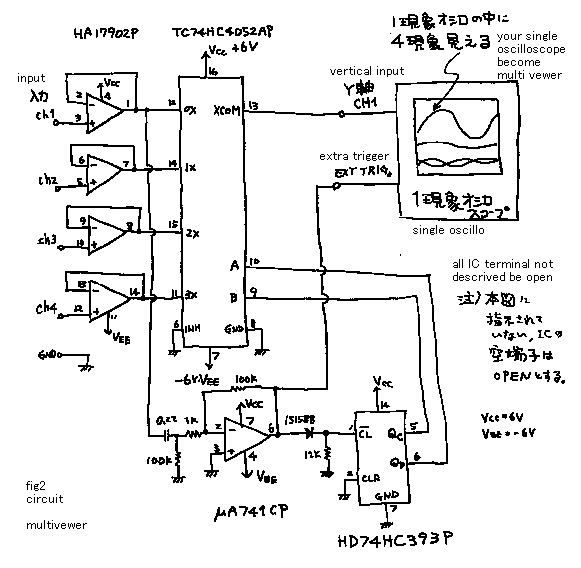 HA17902P
TC74HC4052AP
VCC +6V
1現象オシロの中に
4現象見える
your single
oscilloscope
become
multi vewer
input
入力
VCC
4
2
3
1
ch1
16
12
0X
XCOM
13
vertical input
Y軸
CH1
6
5
7
ch2
14
1X
extra trigger
EXT TRIG.
1現象オシロ
スコープ
single oscillo
9
10
8
ch3
15
2X
A
10
all IC terminal not
descrived be open
13
12
14
11
ch4
VEE
11
3X
B
9
6
INH
GND
8
7
-6V:VEE
GND
注)本図に
指示されて
いない,ICの
空端子は
OPENとする。
VCC=6V
VEE=-6V
100K
0.22
1K
100K
VCC
2
3
7
6
4
VEE
1S1588
12K
VCC
14
1
CL
QC
5
QD
6
2
CLR
GND
7
μA741CP
HD74HC393P
fig2
circuit
multivewer